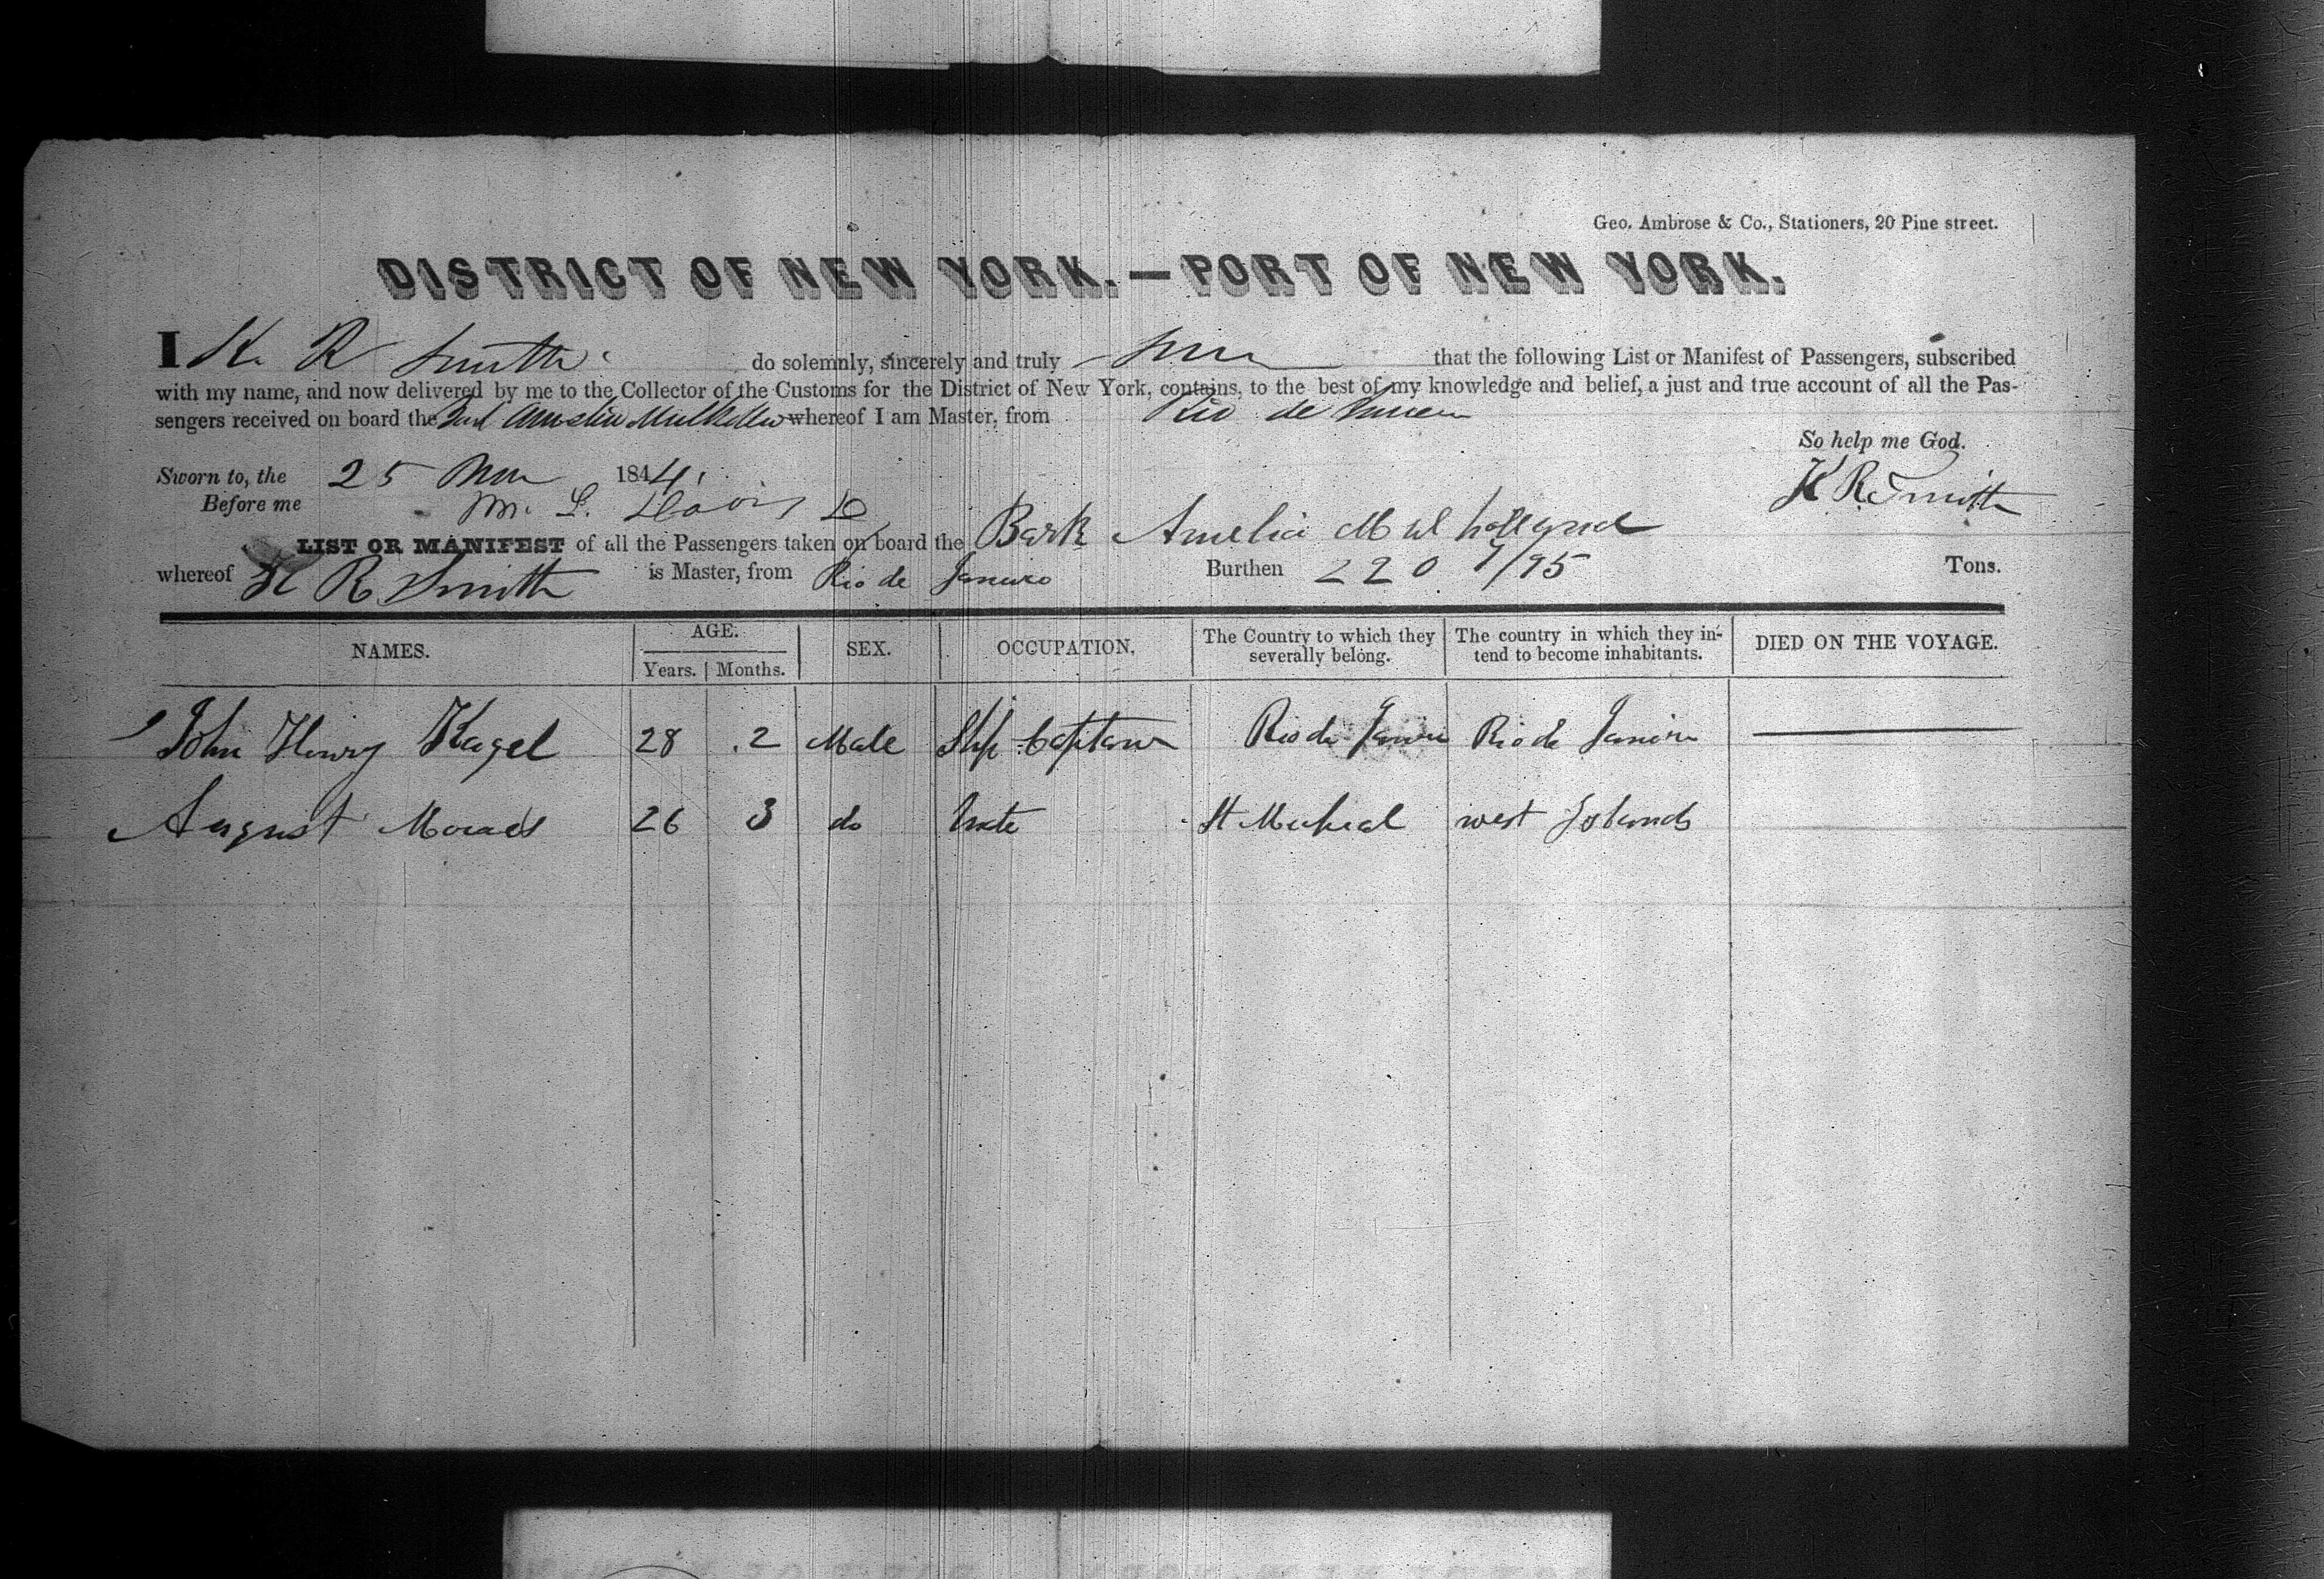 Geo. Ambrose & Co., Stationers, 20 Pine street.
DISTRICT OF NEW YORK.—PORT OF NEW YORK.
I R Smith do solemnly, sincerely and truly that the following List or Manifest of Passengers, subscribed
with my name, and now delivered by me to the Collector of the Customs for the District of New York, contains, to the best of my knowledge and belief, a just and true account of all the Pas-
sengers received on board the whereof I am Master, from Rio de
So help me God.
Sworn to, the 25 1844
R Smith
Before me M. L. Davis
LIST OR MANIFEST of all the Passengers taken on board the Bark Amelia Mulholland
whereof R Smith is Master, from Rio de Janeiro Burthen 220 7/95 Tons.
NAMES. AGE. SEX. OCCUPATION. The Country to which they severally belong. The country in which they in-
tend to become inhabitants. DIED ON THE VOYAGE.
Years. Months.
John Henry Kagel 28 2 Male Ship Captain Rio de Janeiro Rio de Janeiro
August 26 3 do St west Islands